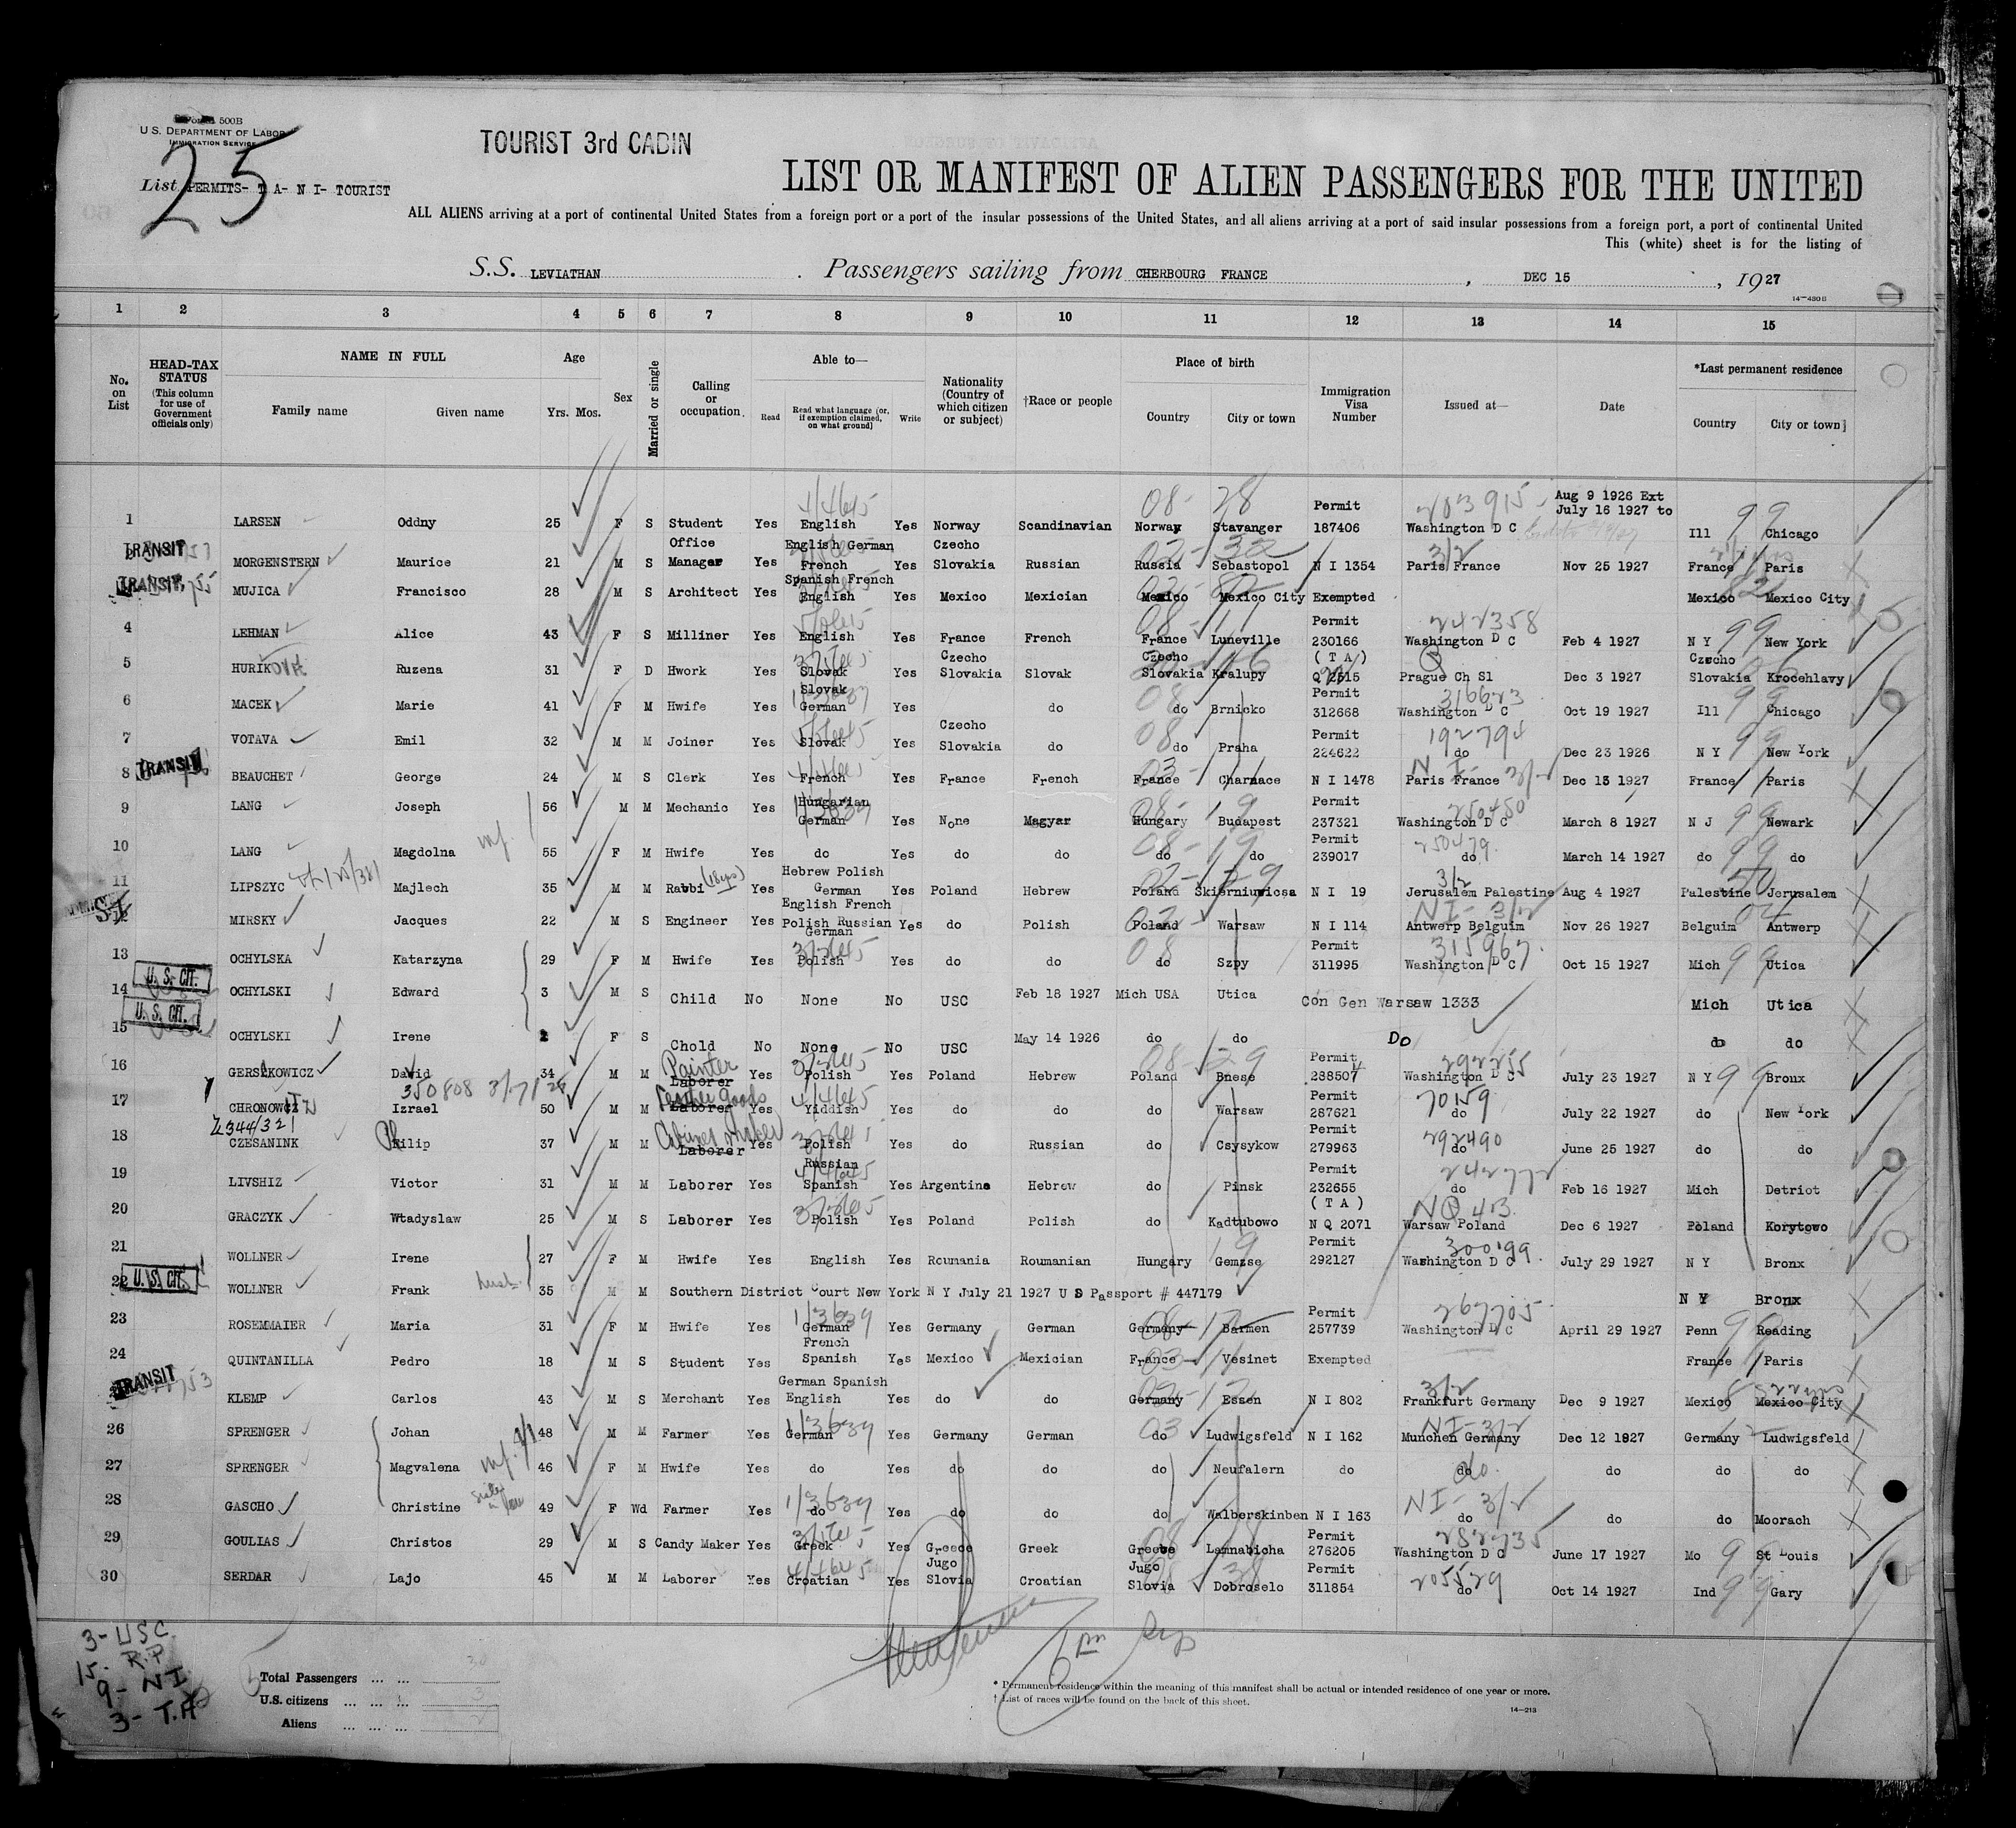 Form 500B
U.S. DEPARTMENT OF LABOR
IMMIGRATION SERVICE
TOURIST 3rd CABIN
25
List PERMITS- T A- N I- TOURIST
LIST OR MANIFEST OF ALIEN PASSENGERS FOR THE UNITED
ALL ALIENS arriving at a port of continental United States from a foreign port or a port of the insular possessions of the United States, and all aliens arriving at a port of said insular possessions from a foreign port, a port of continental United
This (white) sheet is for the listing of
S.S. LEVIATHAN Passengers sailing from CHERBOURG FRANCE, DEC 15, 1927
14-430B
1 2 3 4 5 6 7 8 9 10 11 12 13 14 15
No. on List
HEAD-TAX STATUS (This column for use of Government officials only)
NAME IN FULL
Family name Given name
Age
Yrs. Mos.
Sex
Married or single
Calling or occupation
Able to—
Read Read what language (or, if exemption claimed, on what ground) Write
Nationality (Country of which citizen or subject)
†Race or people
Place of birth
Country City or town
Immigration Visa Number
Issued at—
Date
*Last permanent residence
Country City or town
1 LARSEN Oddny 25 F S Student Yes English Yes Norway Scandinavian Norway Stavanger Permit 187406 203915 Washington D C Aug 9 1926 Ext July 16 1927 to Ill Chicago
TRANSIT MORGENSTERN Maurice 21 M S Office Manager Yes English German French Yes Czecho Slovakia Russian Russia Sebastopol N I 1354 Paris France Nov 25 1927 France Paris
TRANSIT MUJICA Francisco 28 M S Architect Yes Spanish French English Yes Mexico Mexician Mexico Mexico City Exempted Mexico Mexico City
4 LEHMAN Alice 43 F S Milliner Yes English Yes France French France Luneville Permit 230166 242358 Washington D C Feb 4 1927 N Y New York
5 HURIKOVA Ruzena 31 F D Hwork Yes Slovak Yes Czecho Slovakia Slovak Czecho Slovakia Kralupy ( T A ) Q 2515 Prague Ch Sl Dec 3 1927 Czecho Slovakia Krocehlavy
6 MACEK Marie 41 F M Hwife Yes Slovak German Yes do do Brnicko Permit 312668 316623 Washington D C Oct 19 1927 Ill Chicago
7 VOTAVA Emil 32 M M Joiner Yes Slovak Yes Czecho Slovakia do do Praha Permit 224622 192794 do Dec 23 1926 N Y New York
8 TRANSIT BEAUCHET George 24 M S Clerk Yes French Yes France French France Charnace N I 1478 Paris France Dec 13 1927 France Paris
9 LANG Joseph 56 M M Mechanic Yes Hungarian German Yes None Magyar Hungary Budapest Permit 237321 250480 Washington D C March 8 1927 N J Newark
10 LANG Magdolna 55 F M Hwife Yes do Yes do do do do Permit 239017 250479 do March 14 1927 do do
11 LIPSZYC Majlech 35 M M Rabbi Yes Hebrew Polish German Yes Poland Hebrew Poland Skierniuwicsa N I 19 Jerusalem Palestine Aug 4 1927 Palestine Jerusalem
12 MIRSKY Jacques 22 M S Engineer Yes English French Polish Russian German Yes do Polish Poland Warsaw N I 114 Antwerp Belguim Nov 26 1927 Belguim Antwerp
13 OCHYLSKA Katarzyna 29 F M Hwife Yes Polish Yes do do do Szpy Permit 311995 315967 Washington D C Oct 15 1927 Mich Utica
14 U. S. CIT. OCHYLSKI Edward 3 M S Child No None No USC Feb 18 1927 Mich USA Utica Con Gen Warsaw 1333 Mich Utica
15 U. S. CIT. OCHYLSKI Irene 2 F S Chold No None No USC May 14 1926 do do Do do do
16 GERSZKOWICZ David 34 M M Painter Laborer Yes Polish Yes Poland Hebrew Poland Bnese Permit 288507 292255 Washington D C July 23 1927 N Y Bronx
350808
17 CHRONOWCZ Izrael 50 M M Leather goods Laborer Yes Yiddish Yes do do do Warsaw Permit 287621 70159 do July 22 1927 do New York
18 CZESANINK Filip 37 M M Cabinet Maker Laborer Yes Polish Yes do Russian do Csysykow Permit 279963 292490 do June 25 1927 do do
19 LIVSHIZ Victor 31 M M Laborer Yes Russian Spanish Yes Argentina Hebrew do Pinsk Permit 232655 do Feb 16 1927 Mich Detriot
20 GRACZYK Wtadyslaw 25 M S Laborer Yes Polish Yes Poland Polish do Kadtubowo ( T A ) N Q 2071 Warsaw Poland Dec 6 1927 Poland Korytowo
21 WOLLNER Irene 27 F M Hwife Yes English Yes Roumania Roumanian Hungary Gemzse Permit 292127 300199 Washington D C July 29 1927 N Y Bronx
22 U. S. CIT. WOLLNER Frank 35 M M Southern District Court New York N Y July 21 1927 U S Passport # 447179 N Y Bronx
23 ROSEMMAIER Maria 31 F M Hwife Yes German Yes Germany German Germany Barmen Permit 257739 267705 Washington D C April 29 1927 Penn Reading
24 QUINTANILLA Pedro 18 M S Student Yes French Spanish Yes Mexico Mexician France Vesinet Exempted France Paris
TRANSIT KLEMP Carlos 43 M S Merchant Yes German Spanish English Yes do do Germany Essen N I 802 Frankfurt Germany Dec 9 1927 Mexico Mexico City
26 SPRENGER Johan 48 M M Farmer Yes German Yes Germany German do Ludwigsfeld N I 162 Munchen Germany Dec 12 1927 Germany Ludwigsfeld
27 SPRENGER Magvalena 46 F M Hwife Yes do Yes do do do Neufalern do do do do do
28 GASCHO Christine 49 F Wd Farmer Yes do Yes do do do Walberskinben N I 163 do do do Moorach
29 GOULIAS Christos 29 M S Candy Maker Yes Greek Yes Greece Greek Greece Lamnabicha Permit 276205 282735 Washington D C June 17 1927 Mo St Louis
30 SERDAR Lajo 45 M M Laborer Yes Croatian Yes Jugo Slovia Croatian Jugo Slovia Dobroselo Permit 311854 205529 do Oct 14 1927 Ind Gary
3- USC.
15. R.P.
9- NI
3- T.A
Total Passengers ... ... 30
U.S. citizens ... ... ... 3
Aliens ... ... ...
* Permanent residence within the meaning of this manifest shall be actual or intended residence of one year or more.
† List of races will be found on the back of this sheet.
14-213